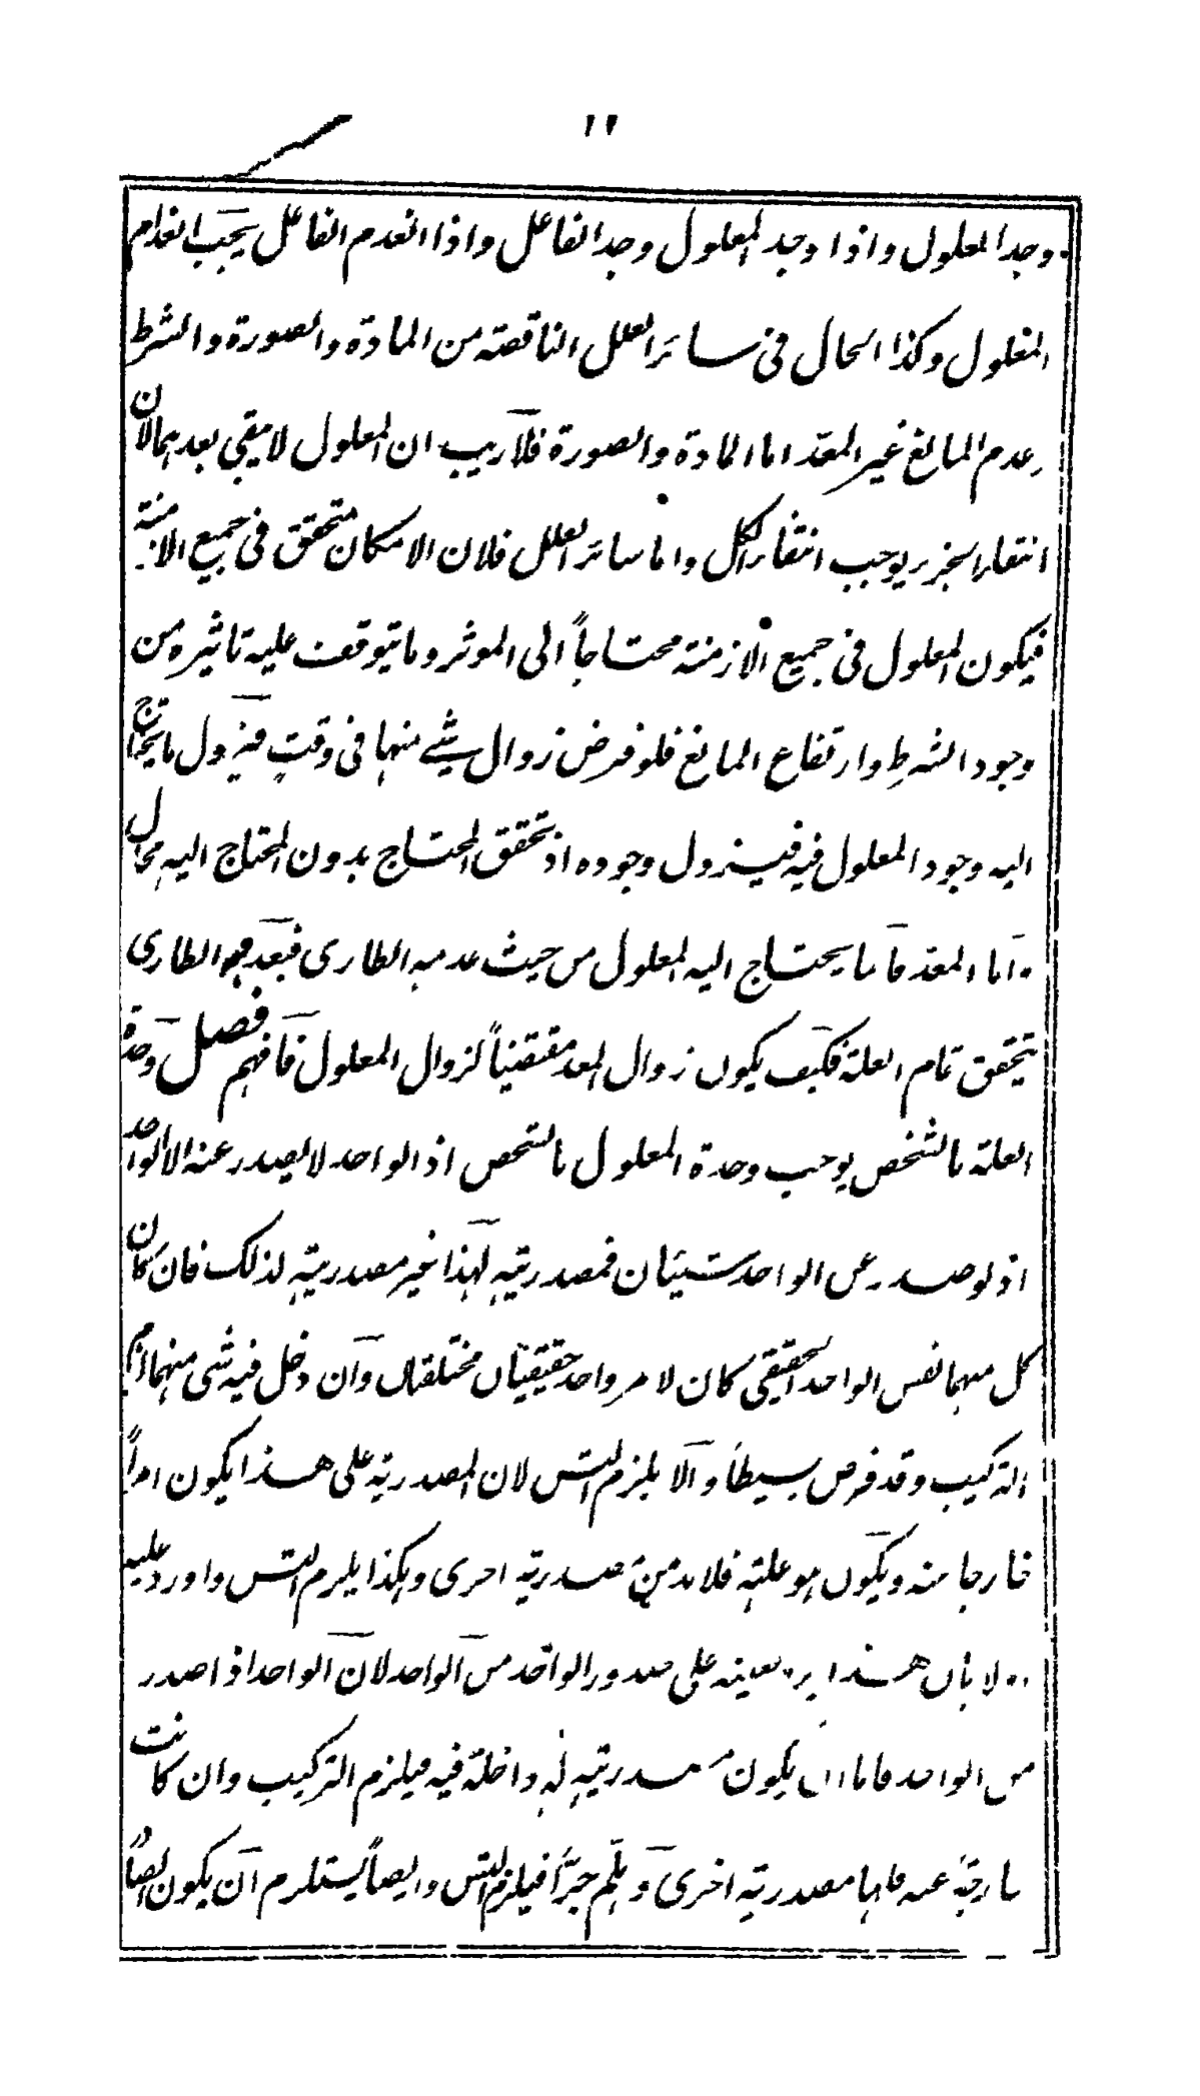 ١٢
وجد المعلول واذا وجد المعلول وجد الفاعل واذا انعدم الفاعل يجب انعدام
المعلول وكذا الحال فى سائر العلل الناقصة من المادة والصورة والشرط
وعدم المانع غير المعد اما المادة والصورة فلا ريب ان المعلول لا يبقى بعدهما لان
انتفاء الجزء يوجب انتفاء الكل واما سائر العلل فلان الامكان متحقق فى جميع الازمنة
فيكون المعلول فى جميع الازمنة محتاجاً الى الموثر وما يتوقف عليه تاثيره من
وجود الشرط وارتفاع المانع فلو فرض زوال شئ منها فى وقت فيزول ما يحتاج
اليه وجود المعلول فيه فيزول وجوده اذ تحقق المحتاج بدون المحتاج اليه محال
واما المعد فانما يحتاج اليه المعلول من حيث عدمه الطارى فبعدمه الطارى
يتحقق تمام العلة فكيف يكون زوال المعد مقتضياً لزوال المعلول فافهم فصل وحدة
العلة بالشخص يوجب وحدة المعلول بالشخص اذ الواحد لا يصدر عنه الا الواحد
اذ لو صدر عن الواحد شيئان فمصدريته لهذا غير مصدريته لذلك فان كان
كل منهما نفس الواحد الحقيقى كان لامر واحد حقيقيتان مختلفتان وان دخل فيه شى منهما لزم
التركيب وقد فرض بسيطاً والا يلزم التس لان المصدرية على هذا يكون امراً
خارجا منه ويكون هو علته فلا بد من مصدرية اخرى وهكذا يلزم التس واورد عليه
اولا بان هذا يرد بعينه على صدور الواحد من الواحد لان الواحد اذا صدر
من الواحد فاما ان يكون مصدريته له داخلة فيه فيلزم التركيب وان كانت
خارجة عنه فلها مصدرية اخرى وهلم جرّاً فيلزم التس وايضاً يستلزم ان يكون الصادر